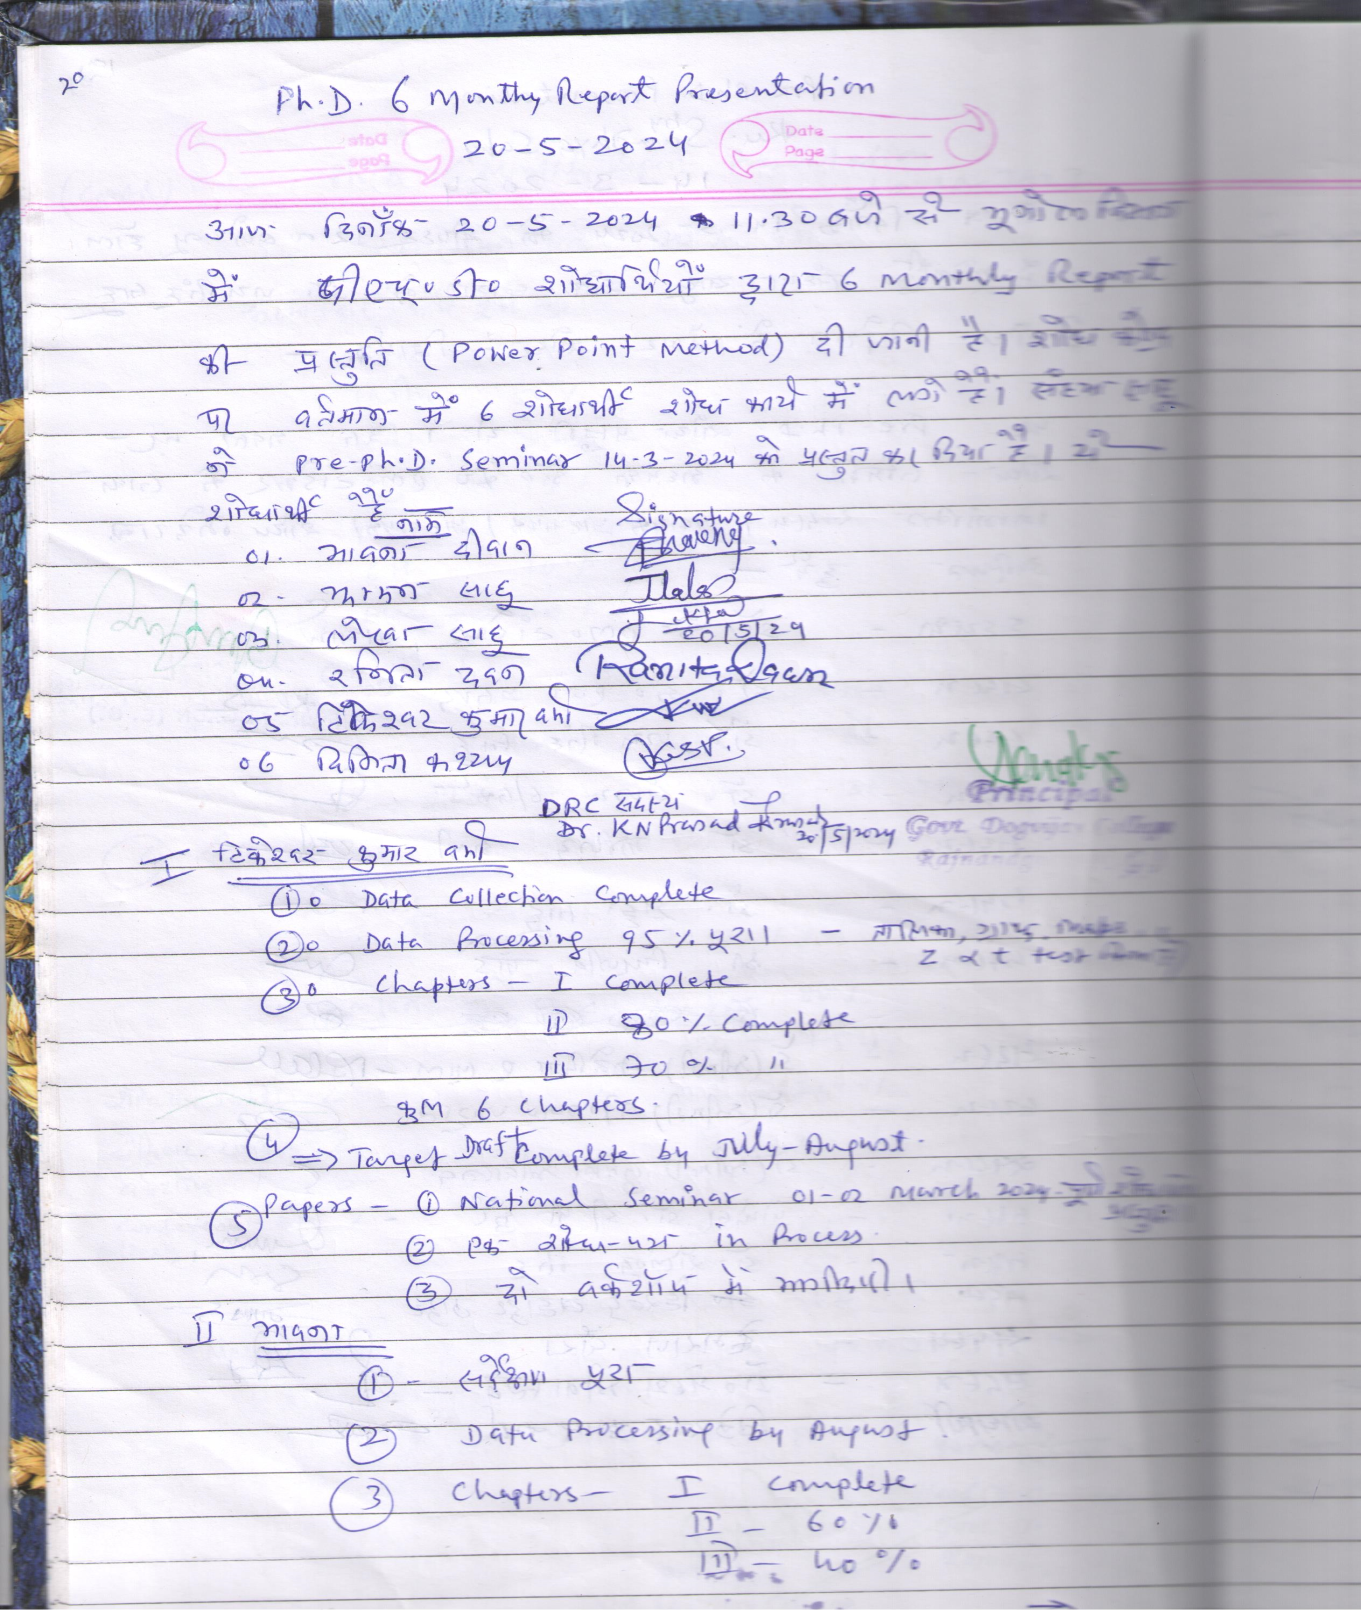 20
Ph.D. 6 Monthly Report Presentation
Date
Page
20-5-2024
आज दिनाँक 20-5-2024 11.30 बजे से भूगोल विभाग
में पीएच०डी० शोधार्थियों द्वारा 6 Monthly Report
की प्रस्तुति (Power Point Method) दी जानी है। शोध केंद्र
पर वर्तमान में 6 शोधार्थी शोध कार्य में लगे हैं।
ने Pre-Ph.D. Seminar 14-3-2024 को प्रस्तुत कर दिया है। ये
शोधार्थी हैं
नाम Signature
01. भावना दीवान
02. साहू
03. साहू 20/5/24
04. रनिता Ranita
05 टिकेश्वर कुमार वर्मा
06 कश्यप
DRC सदस्य
Dr. KN Prasad 20/5/2024
Principal
Govt Digvijay College
I टिकेश्वर कुमार वर्मा
① Data Collection Complete
② Data Processing 95% पूरा। - तालिका, ग्राफ,
Z & t test
③ Chapters - I Complete
II 80% Complete
III 70% "
कुल 6 Chapters.
④ => Target Draft Complete by July-August.
⑤ Papers - ① National Seminar 01-02 March 2024
② एक शोध-पत्र in Process.
③ दो वर्कशॉप में
II भावना
① - सर्वेक्षण पूरा
② Data Processing by August.
③ Chapters - I Complete
II - 60%
III - 40%